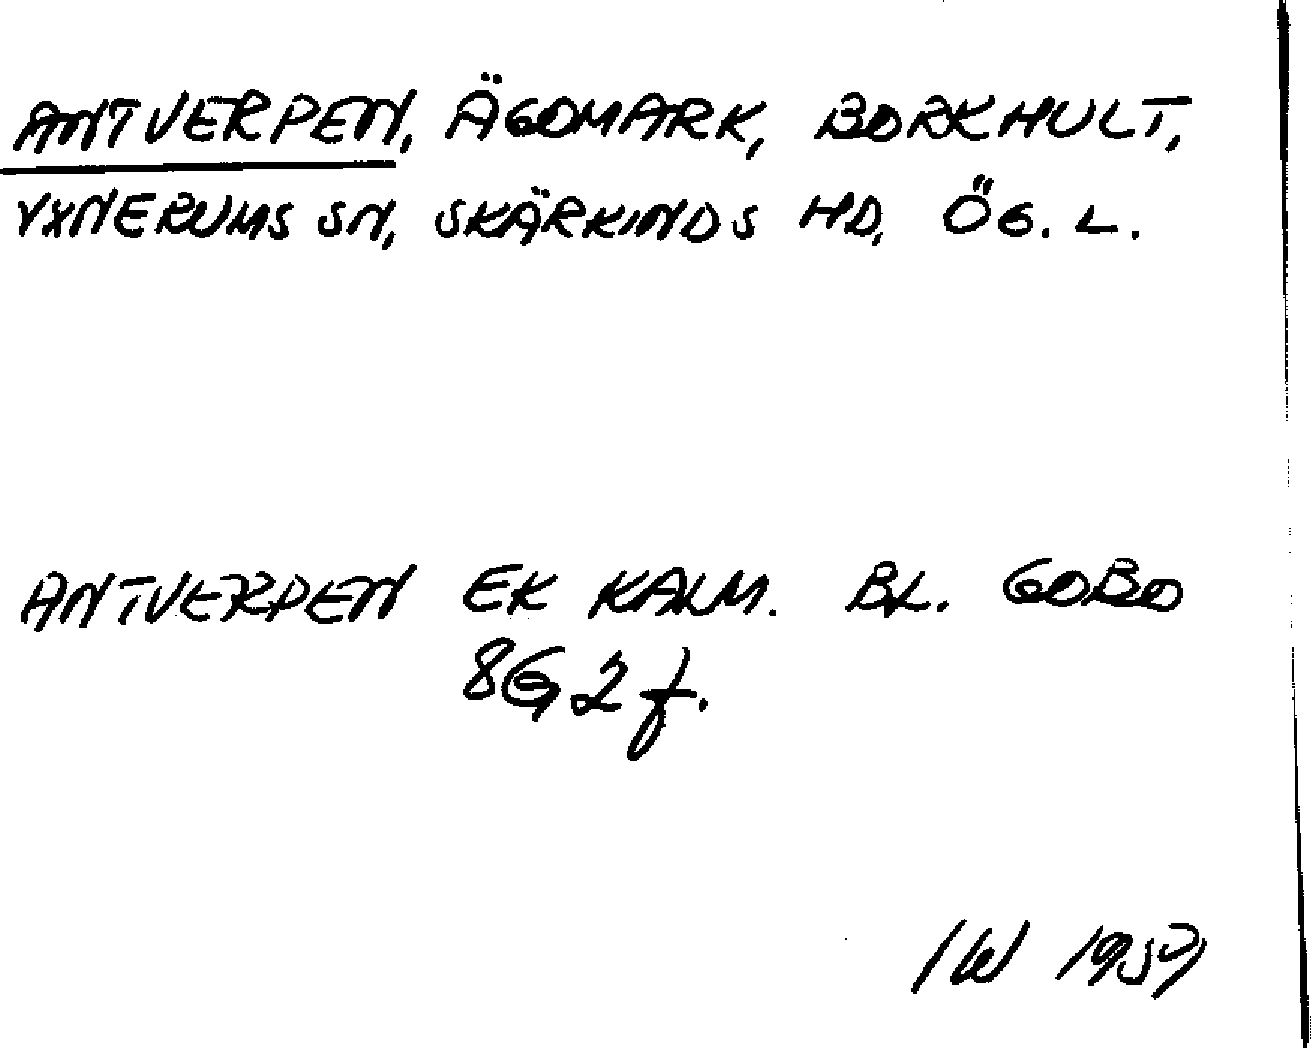 ANTVERPEN, ÄGOMARK, BORKHULT,
YXNERUMS SN, SKÄRKINDS HD, ÖG. L.
ANTVERPEN EK KALM. BL. GOBO
8G 2 f.
IW 1957